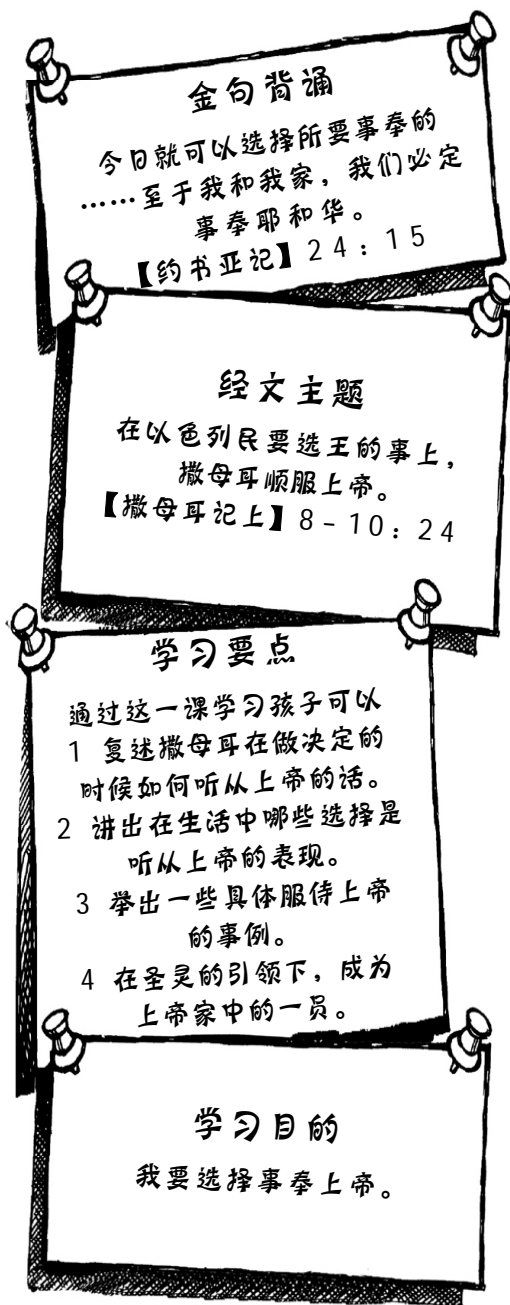 金句背诵
今日就可以选择所要事奉的
……至于我和我家，我们必定
事奉耶和华。
【约书亚记】24：15
经文主题
在以色列民要选王的事上，
撒母耳顺服上帝。
【撒母耳记上】8-10：24
学习要点
通过这一课学习孩子可以
1 复述撒母耳在做决定的
时候如何听从上帝的话。
2 讲出在生活中哪些选择是
听从上帝的表现。
3 举出一些具体服侍上帝
的事例。
4 在圣灵的引领下，成为
上帝家中的一员。
学习目的
我要选择事奉上帝。